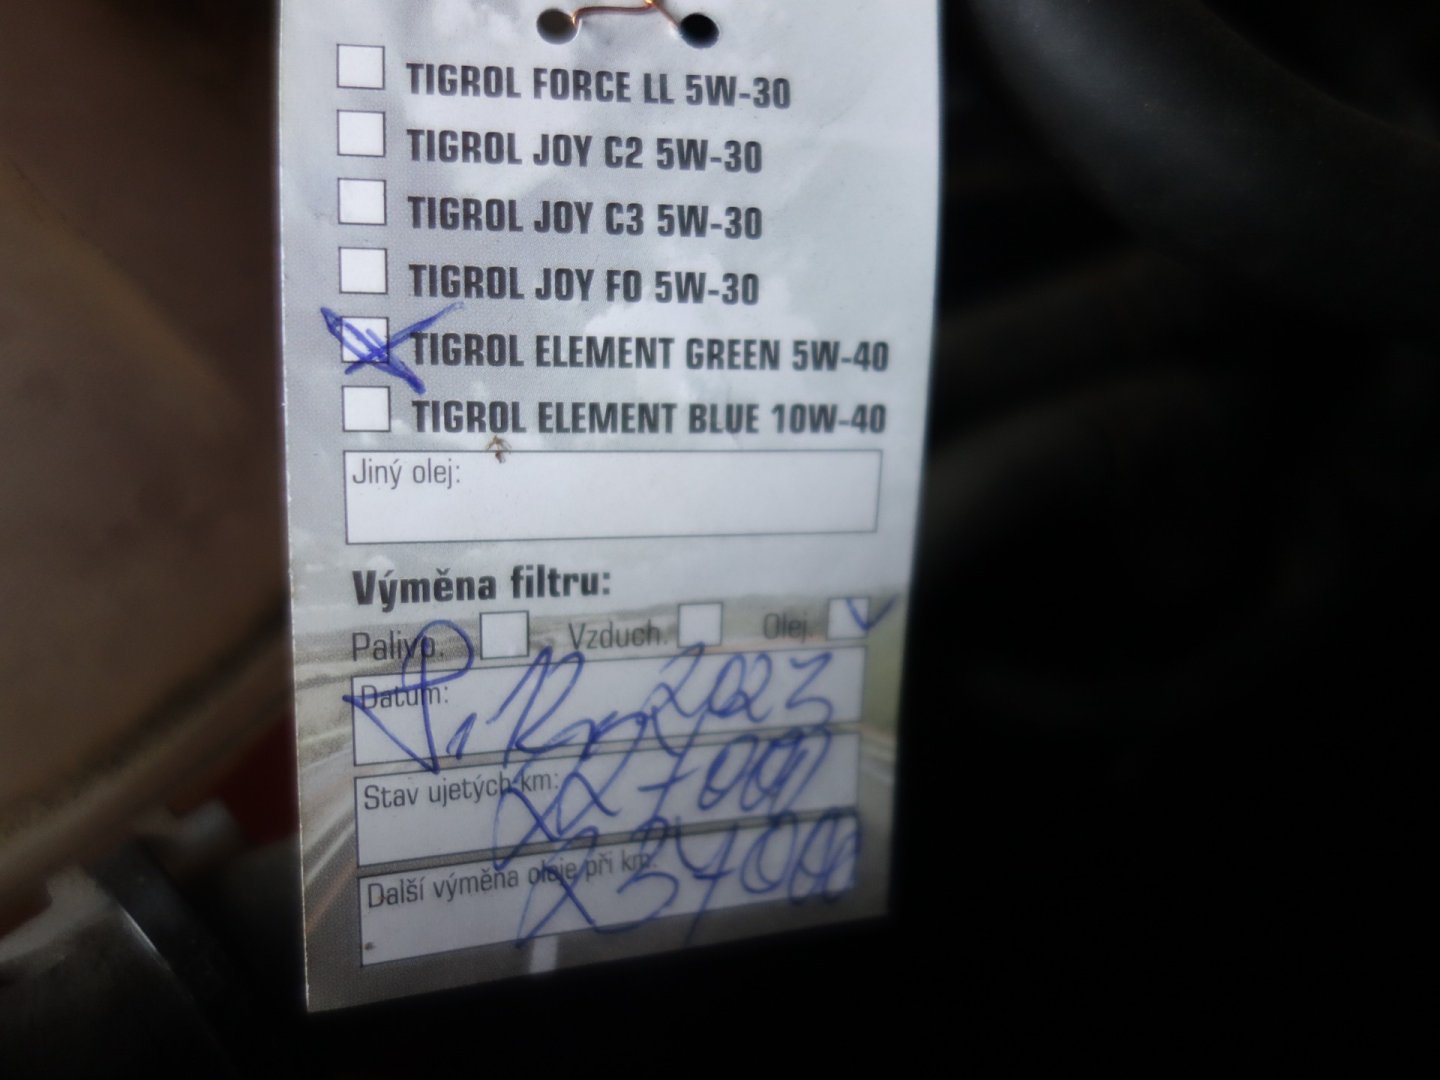 TIGROL FORCE LL 5W-30
TIGROL JOY C2 5W-30
TIGROL JOY C3 5W-30
TIGROL JOY FO 5W-30
TIGROL ELEMENT GREEN 5W-40
TIGROL ELEMENT BLUE 10W-40
Jiný olej:
Výměna filtru:
Palivo. Vzduch. Olej.
Datum: 2023
Stav ujetých km:
Další výměna oleje při km: